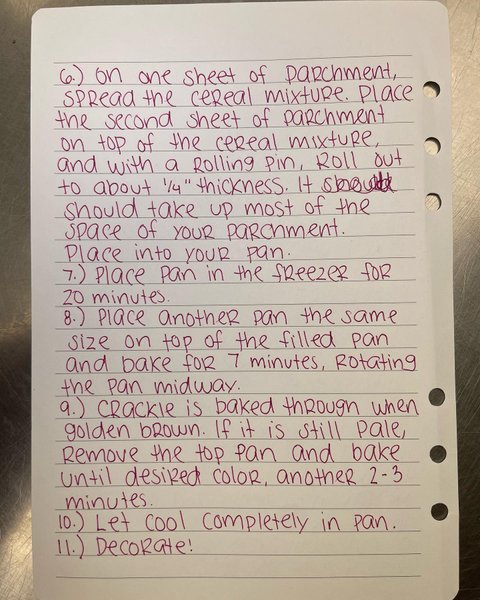 6.) On one sheet of parchment,
spread the cereal mixture. Place
the second sheet of parchment
on top of the cereal mixture,
and with a rolling pin, roll out
to about 1/4" thickness. It
should take up most of the
space of your parchment.
Place into your pan.
7.) Place pan in the freezer for
20 minutes.
8.) Place another pan the same
size on top of the filled pan
and bake for 7 minutes, rotating
the pan midway.
9.) Crackle is baked through when
golden brown. If it is still pale,
remove the top pan and bake
until desired color, another 2-3
minutes.
10.) Let cool completely in pan.
11.) Decorate!